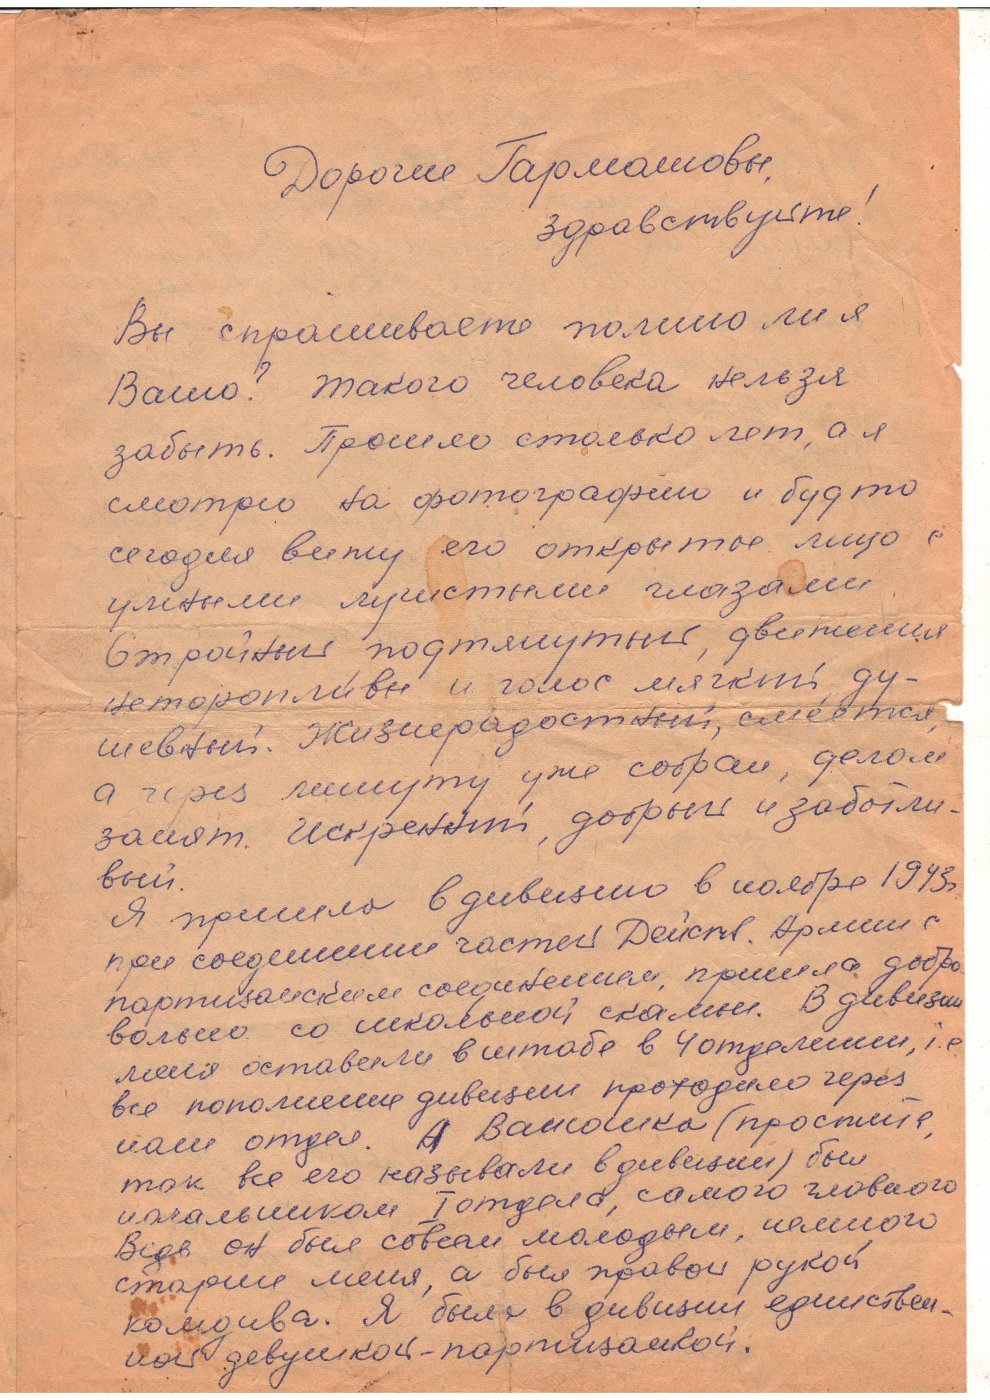 Дорогие Гармашовы,
здравствуйте!
Вы спрашиваете помню ли я
Ваню? Такого человека нельзя
забыть. Прошло столько лет, а я
смотрю на фотографию и будто
сегодня вижу его открытое лицо с
умными лучистыми глазами
Стройный подтянутый, движения
неторопливы и голос мягкий, ду-
шевный. Жизнерадостный, смеётся,
а через минуту уже собран, делом
занят. Искренний, добрый и заботли-
вый.
Я пришла в дивизию в ноябре 1943г.
при соединении частей Действ. Армии с
партизанским соединением, пришла добро-
вольно со школьной скамьи. В дивизии
меня оставили в штабе в 4 отделении, т.е.
все пополнение дивизии проходило через
наш отдел. А Ванюшка (простите,
так все его называли в дивизии) был
начальником I отдела, самого главного
Ведь он был совсем молодым, немного
старше меня, а был правой рукой
комдива. Я была в дивизии единствен-
ной девушкой-партизанкой.